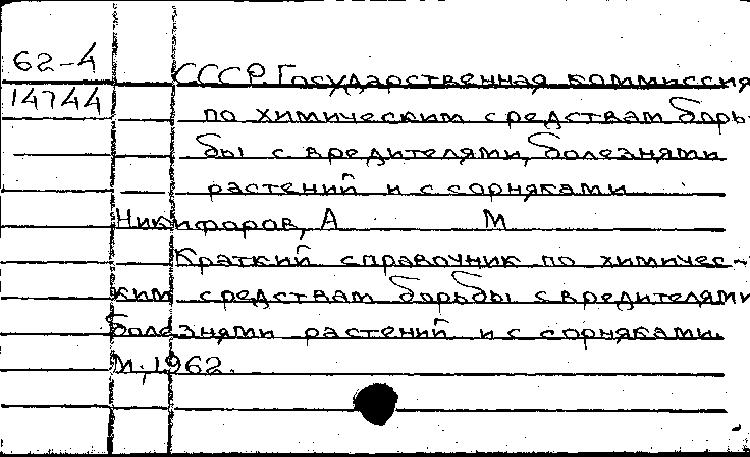 62-4
СССР. Государственная коммиссия
14744
по химическим средствам борь-
бы с вредителями, болезнями
растений и с сорняками
Никифоров, А М
Краткий справочник по химичес-
ким средствам борьбы с вредителями
болезнями растений и с сорняками.
М., 1962.